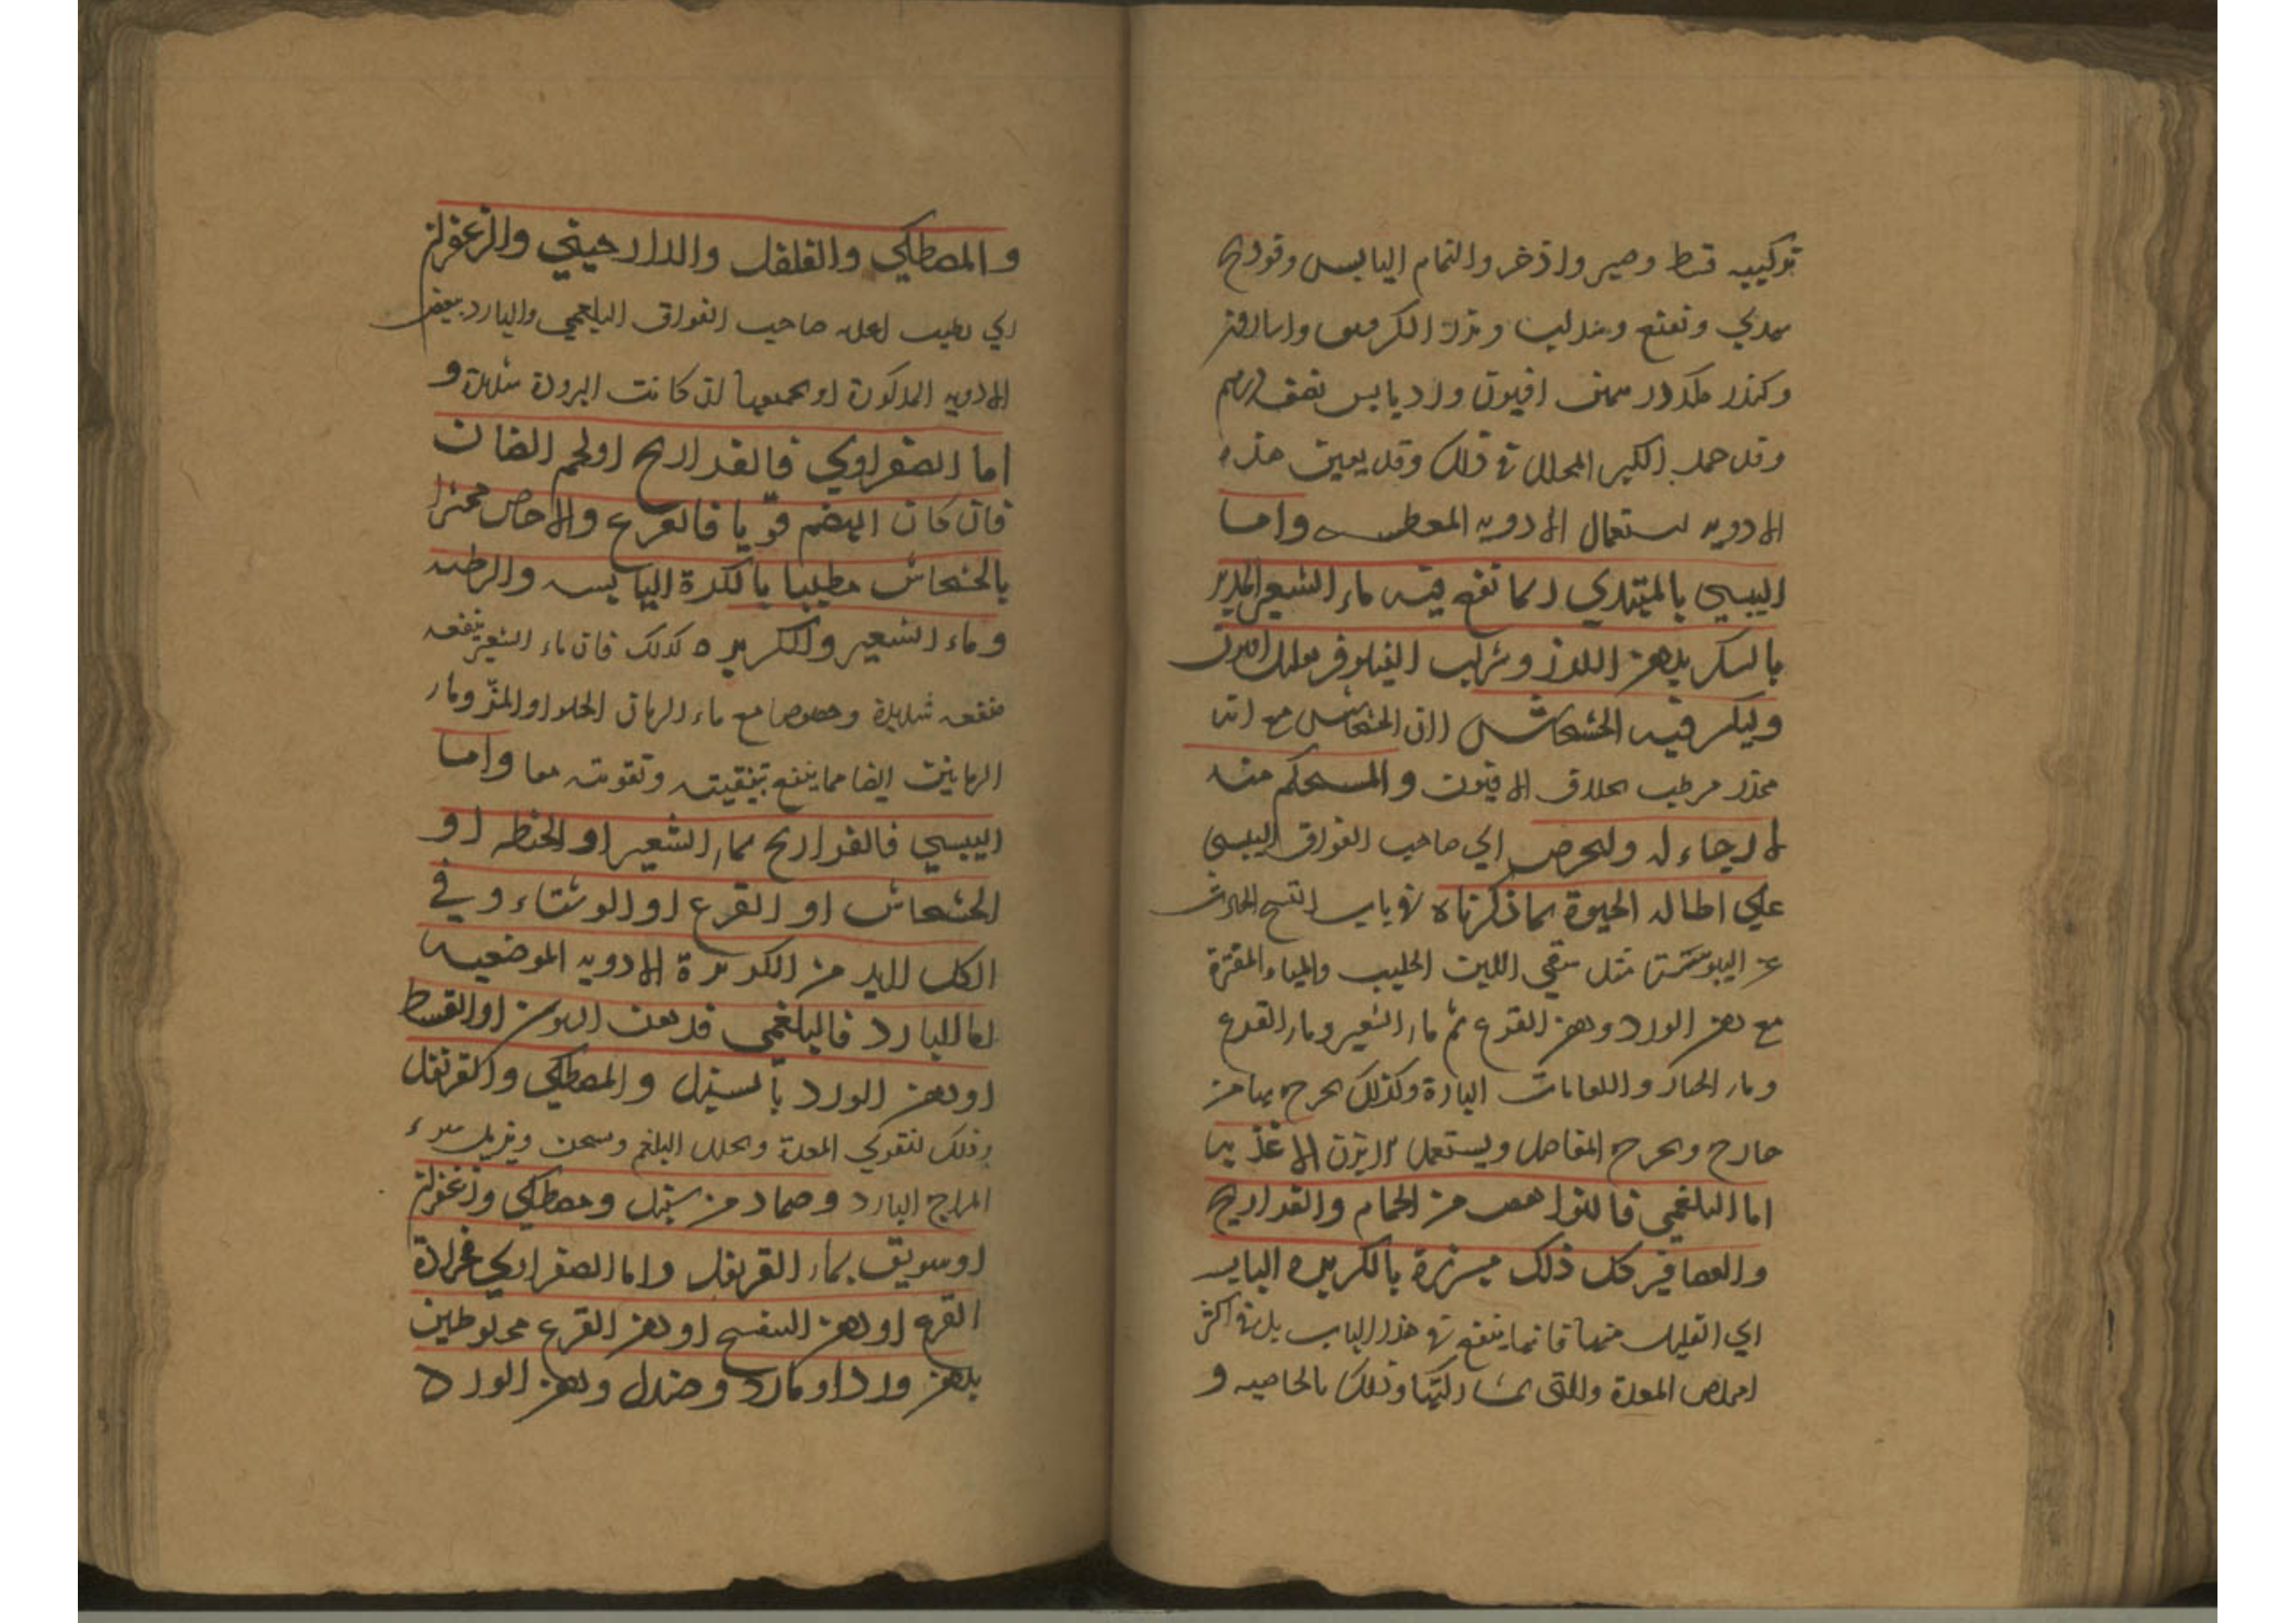 تركيبه قسط وصبر واذخر والنمام اليابس وفودنج
ونعنع وسذاب وبزر الكرفس واسارون
وكندر افيون وورد يابس نصف درهم
وقد حمد الكبير المخلل في ذلك وقد يعين هذه
الادويه استعمال الادويه المعطسه واما
اليبسي بالمبتدي انما تنفع فيه ماء الشعير المدبر
بالسكر بدهن اللوز وشراب النيلوفر
وليكن فيه الخشخاش لان الخشخاش مع انه
مخدر مرطب بخلاف الافيون والمستحكم منه
لا رجاء له وليحرص اي صاحب الفواق اليبسي
علي اطاله الحيوة بما ذكرناه في باب التشنج الحادث
عن اليبوسة مثل سقي اللبن الحليب والمياه المفترة
مع دهن الورد ودهن القرع ثم ماء الشعير وماء القرع
وماء الخيار واللعابات الباردة وكذلك يمرخ بها من
خارج ويمرخ المفاصل ويستعمل الابزن الاغذيه
اما البلغمي فالنواهض من الحمام والفراريج
والعصافير كل ذلك مبزرة بالكزبره اليابسه
اي القليل منها فانها ينفع في هذا الباب بل في اكثر
امراض المعدة والتي بمشاركتها وذلك بالخاصيه و
والمصطكي والفلفل والدارصيني والزعفران
اي يطيب اغذيه صاحب الفواق البلغمي والبارد ببعض
الادويه المذكورة او بجميعها ان كانت البرودة شديدة و
اما الصفراوي فالفراريج او لحم الضان
فان كان الهضم قويا فالقرع والاحاص مخثرا
بالخشخاش مطيبا بالكزبرة اليابسه والرطبه
وماء الشعير والكزبره كذلك فان ماء الشعير ينفعه
منفعه شديدة وخصوصا مع ماء الرمان الحلو او المز وماء
الرمانين ايضا مما ينفع بتنقيته وتقويته معا واما
اليبسي فالفراريج بماء الشعير او الحنطه او
الخشخاش او القرع او الوشتاء وفي
الكل لابد من الكزبرة الادويه الموضعيه
اما البارد فالبلغمي فدهن السوسن او القسط
او دهن الورد بالسنبل والمصطكي والقرنفل
وذلك لتقوي المعدة ويحلل البلغم ويسخن ويزيل سوء
المزاج البارد وضماد من سنبل ومصطكي وزعفران
او سويق بماء القرنفل واما الصفراوي فجرادة
القرع او دهن البنفسج او دهن القرع مخلوطين
بدهن ورد او ماورد وصندل ودهن الورد